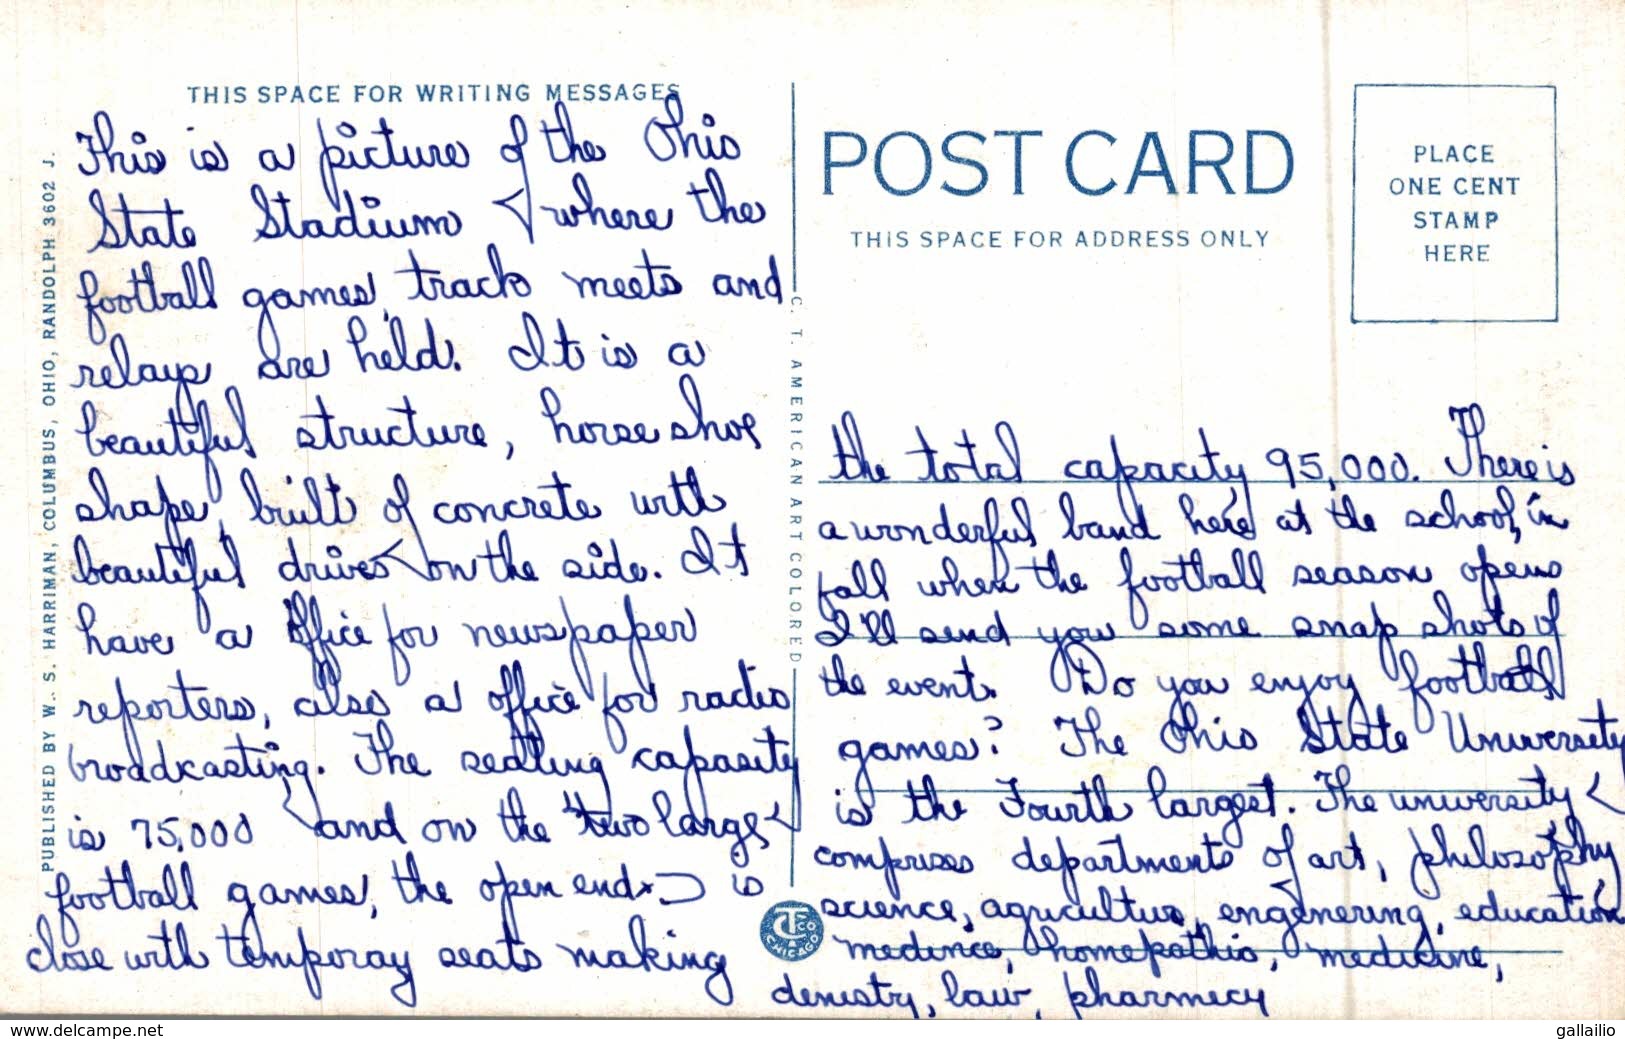 THIS SPACE FOR WRITING MESSAGES
This is a picture of the Ohio
State Stadium where the
football games, track meets and
relays are held. It is a
beautiful structure, horse shoe
shape, built of concrete with
beautiful drives on the side. It
have a office for newspaper
reporters, also a office for radio
broadcasting. The seating capasity
is 75,000 and on the two large
football games, the open end is
close with temporay seats making
PUBLISHED BY W. S. HARRIMAN, COLUMBUS, OHIO, RANDOLPH 3602 J.
C. T. AMERICAN ART COLORED
CT CO
CHICAGO
POST CARD
THIS SPACE FOR ADDRESS ONLY
PLACE
ONE CENT
STAMP
HERE
the total capacity 95,000. There is
a wonderful band here at the school, in
fall when the football season opens
I'll send you some snap shots of
the event. Do you enjoy football
games? The Ohio State University
is the Fourth largest. The university
comprises departments of art, philosophy,
science, agricultur, enginering, education
medince, homepathic, medicine,
denistry, law, pharmecy
www.delcampe.net
gallailio